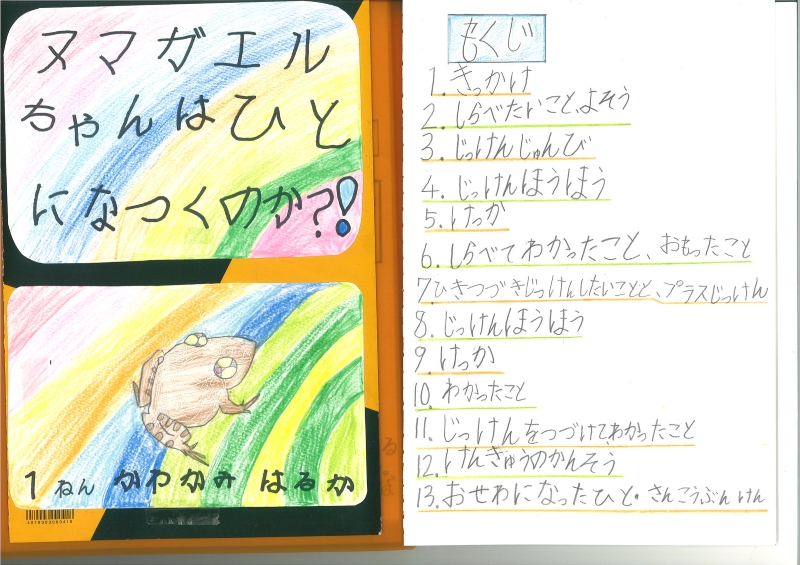 ヌマガエル
ちゃんはひと
になつくのか?!
1ねん かわかみ はるか
もくじ
1. きっかけ
2. しらべたいこと、よそう
3. じっけんじゅんび
4. じっけんほうほう
5. けっか
6. しらべてわかったこと、おもったこと
7. ひきつづきじっけんしたいことと、プラスじっけん
8. じっけんほうほう
9. けっか
10. わかったこと
11. じっけんをつづけてわかったこと
12. けんきゅうのかんそう
13. おせわになったひと・さんこうぶんけん